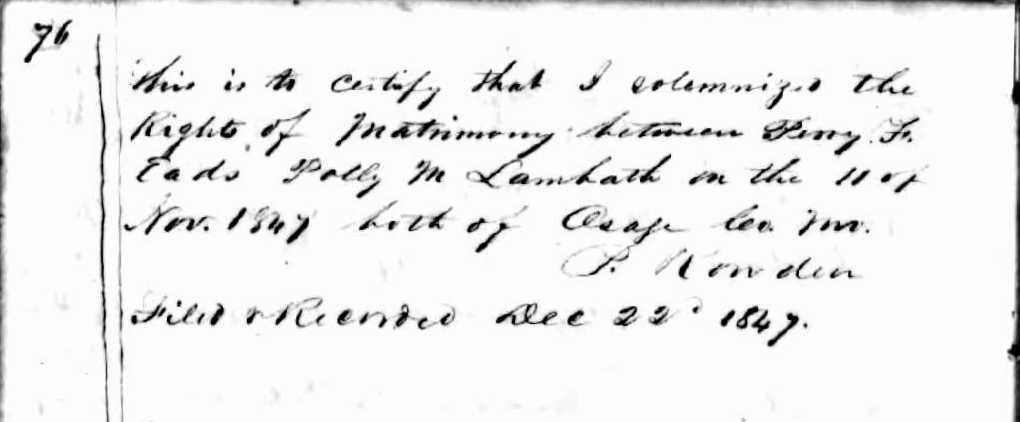 76
this is to certify that I solemnized the
Rights of Matrimony between Perry F.
Eads Polly M Lambath on the 11 of
Nov. 1847 both of Osage Co. Mo.
P. Rowden
Filed & Recorded Dec 22d 1847.